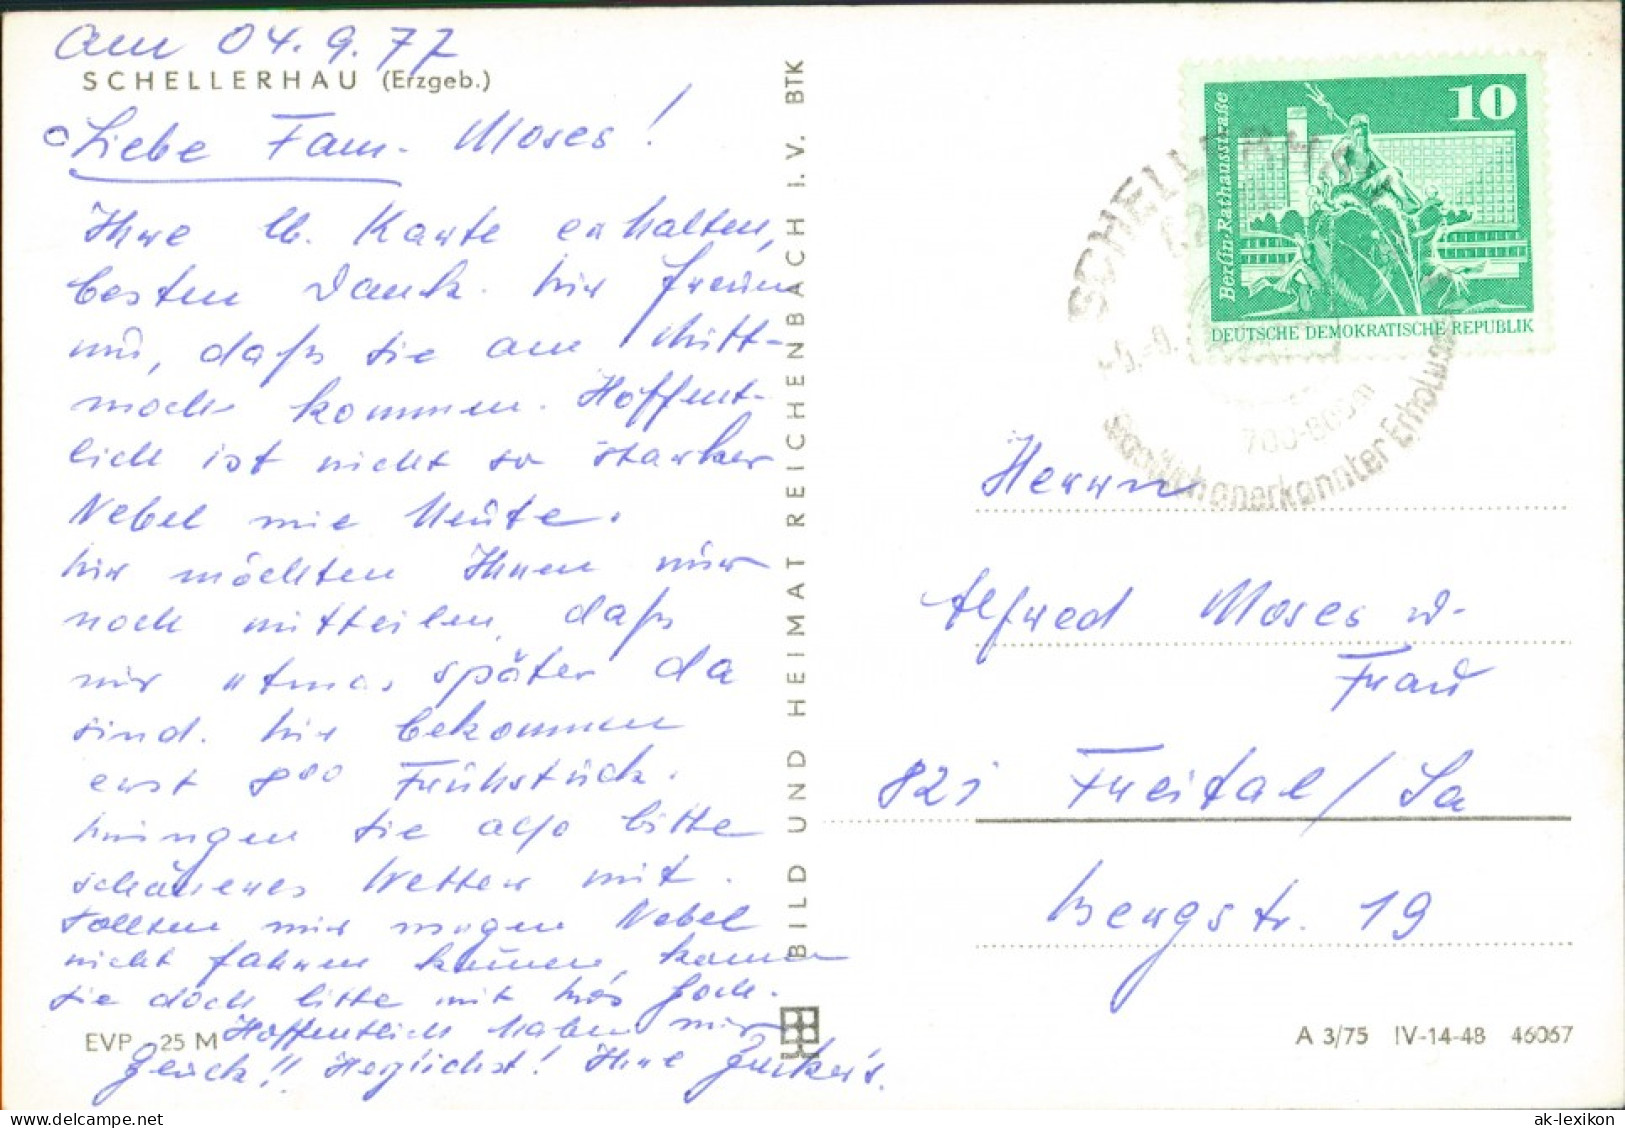 am 04.9.77
SCHELLERHAU (Erzgeb.)
Liebe Fam. Moses!
Ihre lb. Karte erhalten,
besten Dank. Wir freuen
uns, daß Sie am Mitt-
woch kommen. Hoffent-
lich ist nicht so starker
Nebel wie heute.
Wir möchten Ihnen nur
noch mitteilen, daß
wir etwas später da
sind. Wir bekommen
erst 8⁰⁰ Frühstück.
Bringen Sie also bitte
schöneres Wetter mit.
Sollten wir wegen Nebel
nicht fahren können, kommen
Sie doch bitte mit
Hoffentlich haben wir
Glück!! Herzlichst! Ihre Zunker's.
EVP -,25 M
BILD UND HEIMAT REICHENBACH I. V. BTK
10
Berlin-Rathausstraße
DEUTSCHE DEMOKRATISCHE REPUBLIK
SCHELLERHAU
700-800m
Staatlich anerkannter Erholungsort
Herrn
Alfred Moses u.
Frau
821 Freital / Sa
Bergstr. 19
A 3/75 IV-14-48 46067
ak-lexikon